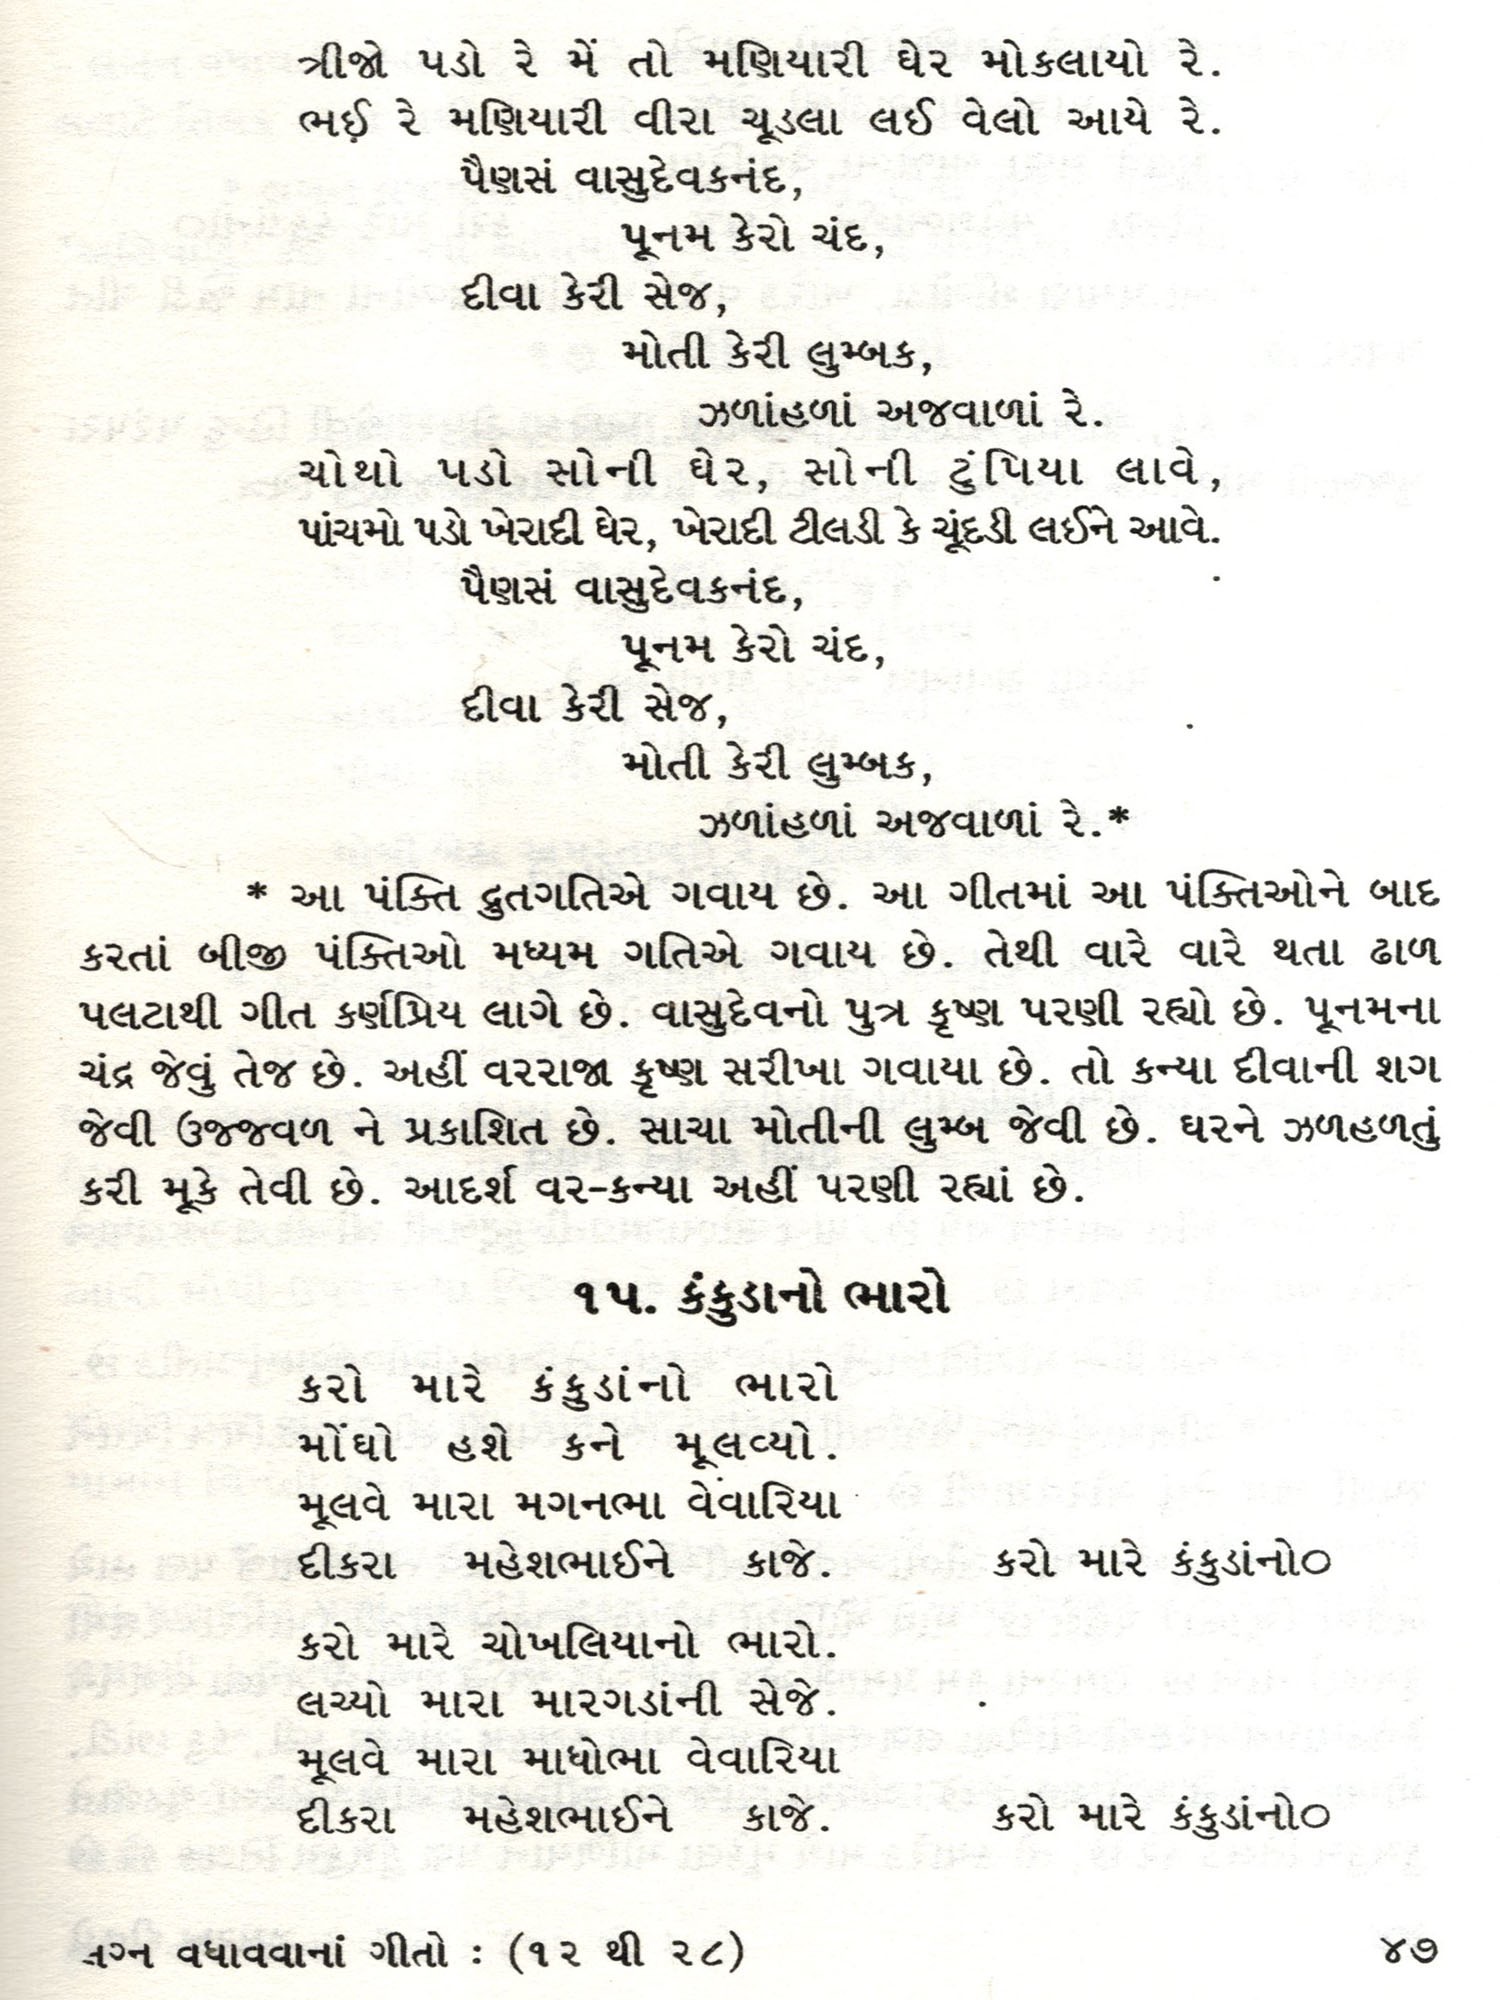 ત્રીજો પડો રે મેં તો મણિયારી ઘેર મોકલાયો રે.
ભઈ રે મણિયારી વીરા ચૂડલા લઈ વેલો આયે રે.
પૈણસં વાસુદેવકનંદ,
પૂનમ કેરો ચંદ,
દીવા કેરી સેજ,
મોતી કેરી લુમ્બક,
ઝળાંહળાં અજવાળાં રે.
ચોથો પડો સોની ઘેર, સોની ટુંપિયા લાવે,
પાંચમો પડો ખેરાદી ઘેર, ખેરાદી ટીલડી કે ચૂંદડી લઈને આવે.
પૈણસં વાસુદેવકનંદ,
પૂનમ કેરો ચંદ,
દીવા કેરી સેજ,
મોતી કેરી લુમ્બક,
ઝળાંહળાં અજવાળાં રે.*
* આ પંક્તિ દ્રુતગતિએ ગવાય છે. આ ગીતમાં આ પંક્તિઓને બાદ
કરતાં બીજી પંક્તિઓ મધ્યમ ગતિએ ગવાય છે. તેથી વારે વારે થતા ઢાળ
પલટાથી ગીત કર્ણપ્રિય લાગે છે. વાસુદેવનો પુત્ર કૃષ્ણ પરણી રહ્યો છે. પૂનમના
ચંદ્ર જેવું તેજ છે. અહીં વરરાજા કૃષ્ણ સરીખા ગવાયા છે. તો કન્યા દીવાની શગ
જેવી ઉજજવળ ને પ્રકાશિત છે. સાચા મોતીની લુમ્બ જેવી છે. ઘરને ઝળહળતું
કરી મૂકે તેવી છે. આદર્શ વર-કન્યા અહીં પરણી રહ્યાં છે.
૧૫. કંકુડાનો ભારો
કરો મારે કંકુડાંનો ભારો
મોંઘો હશે કને મૂલવ્યો.
મૂલવે મારા મગનભા વેવારિયા
દીકરા મહેશભાઈને કાજે. કરો મારે કંકુડાંનો૦
કરો મારે ચોખલિયાનો ભારો.
લચ્યો મારા મારગડાંની સેજે.
મૂલવે મારા માધોભા વેવારિયા
દીકરા મહેશભાઈને કાજે. કરો મારે કંકુડાંનો૦
લગ્ન વધાવવાનાં ગીતો : (૧૨ થી ૨૮) ૪૭